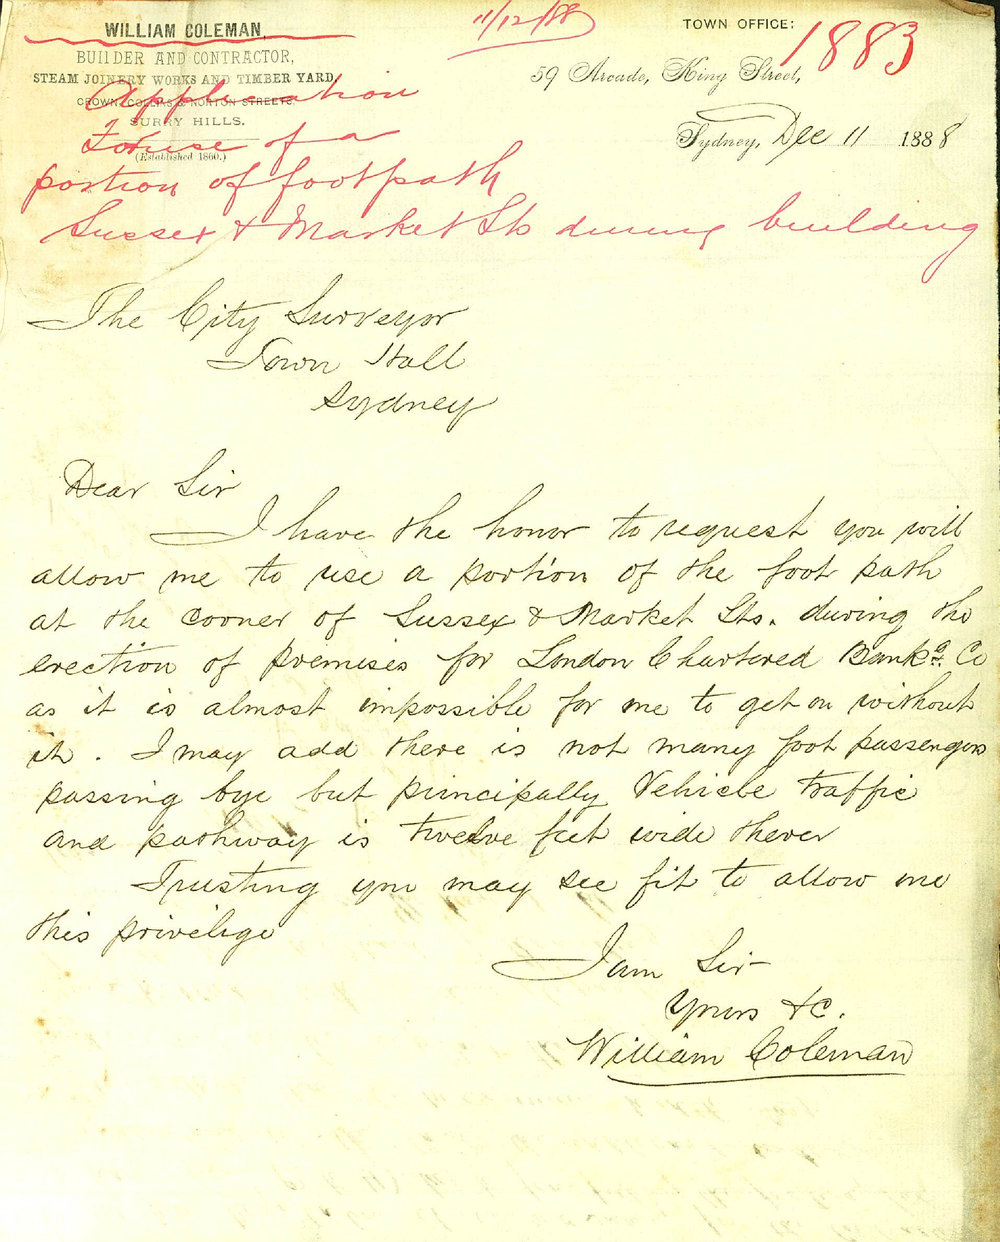 WILLIAM COLEMAN,
BUILDER AND CONTRACTOR,
STEAM JOINERY WORKS AND TIMBER YARD,
CROWN, COLLINS & NORTON STREETS,
SURRY HILLS.
(Established 1860.)
11/12/88
TOWN OFFICE:
1883
59 Arcade, King Street,
Sydney, Dec 11 1888
Application
For use of a
portion of footpath
Sussex & Market Sts during building
The City Surveyor
Town Hall
Sydney
Dear Sir
I have the honor to request you will
allow me to use a portion of the foot path
at the corner of Sussex & Market Sts. during the
erection of premises for London Chartered Bankg. Co
as it is almost impossible for me to get on without
it. I may add there is not many foot passengers
passing bye but principally Vehicle traffic
and pathway is twelve feet wide there
Trusting you may see fit to allow me
this privelige
I am Sir
Yours &c.
William Coleman